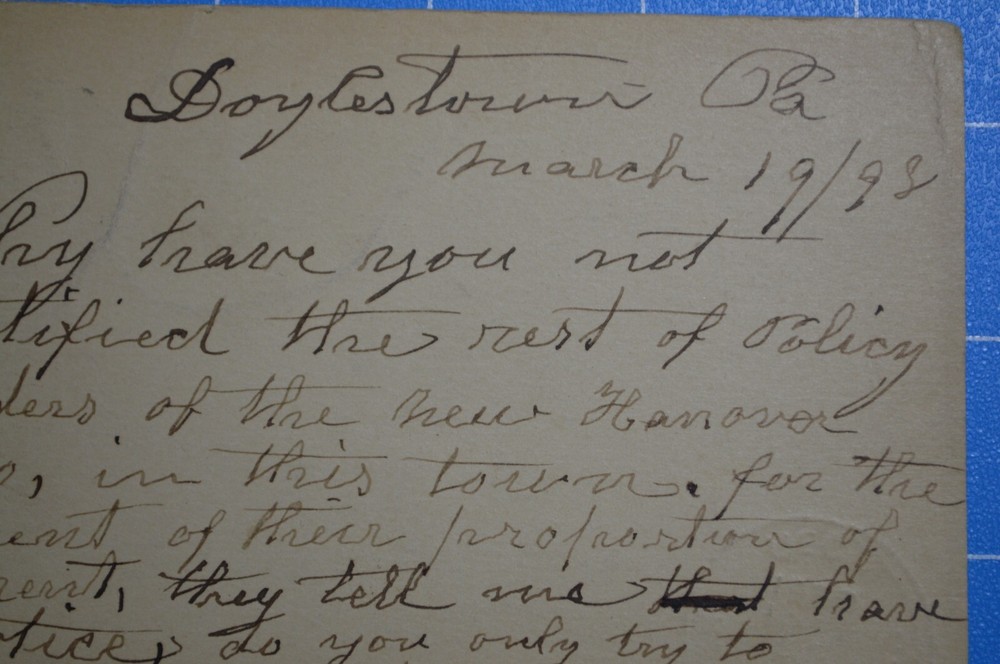 Doylestown Pa
March 19/93
hy have you not
tified the rest of Policy
ders of the new Hanover
o, in this town. for the
ent of their proportion of
rent, they tell me that have
tice, do you only try to